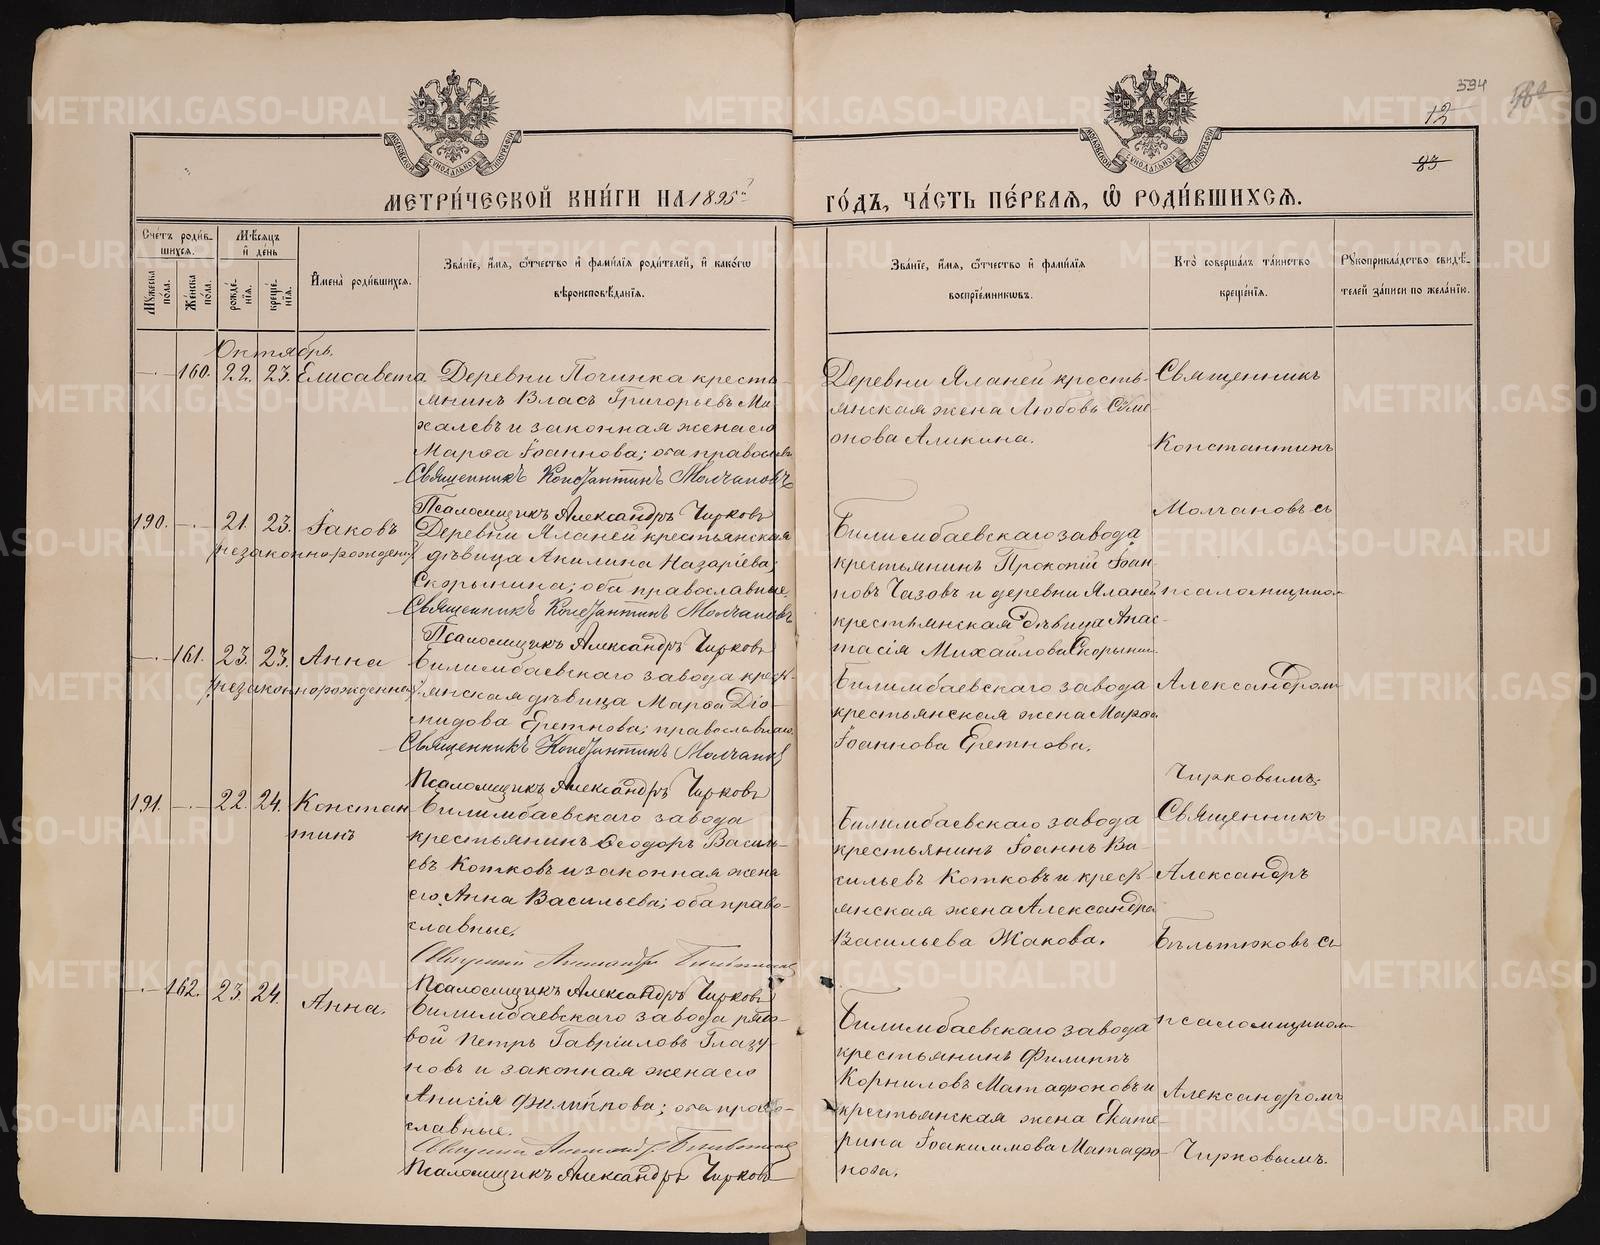 594
12
83
МЕТРИ́ЧЕСКОЙ КНИ́ГИ НА 1895й ГО́ДЪ, ЧА́СТЬ ПЕ́РВАѦ, Ѡ РОДИ́ВШИХСѦ.
Сче́тъ роди́вшихся.
Мѣ́сяцъ и день
Мꙋжеска по́ла.
Же́нска по́ла.
рожде́нїѧ.
креще́нїѧ.
Имена̀ роди́вшихсѧ.
Зва́нїе, и́мѧ, ѻ́тчество и фами́лїѧ роди́телей, и како́гѡ вѣроисповѣ́данїѧ.
Зва́нїе, и́мѧ, ѻ́тчество и фами́лїѧ воспрїе́мникѡвъ.
Кто̀ соверша́лъ та́инство креще́нїѧ.
Рꙋкоприкла́дство свидѣ́телей за́писи по жела́нїю.
Октябрь.
160. 22. 23. Елисавета.
Деревни Починка крестьянинъ
Власъ Григорьевъ Михалевъ
и законная жена его
Марѳа Іоаннова; оба православн.
Священникъ Константинъ Молчановъ
Псаломщикъ Александръ Чирковъ
Деревни Яланей крестьянская
жена Любовь Симеонова
Аликина.
Священникъ
Константинъ
Молчановъ съ
псаломщикомъ
Александромъ
Чирковымъ.
190. 21. 23. Іаковъ
(незаконнорожденный)
Деревни Яланей крестьянская
дѣвица Акилина Назаріева
Скорынина; оба православные.
Священникъ Константинъ Молчановъ
Псаломщикъ Александръ Чирковъ
Билимбаевскаго завода
крестьянинъ Прокопій Іоанновъ
Чазовъ и деревни Яланей
крестьянская дѣвица Анастасія
Михайлова Скорынина.
161. 23. 23. Анна
(незаконнорожденная)
Билимбаевскаго завода крестьянская
дѣвица Марѳа Діомидова
Еретнова; православная.
Священникъ Константинъ Молчановъ
Псаломщикъ Александръ Чирковъ
Билимбаевскаго завода
крестьянская жена Марѳа
Іоаннова Еретнова.
191. 22. 24. Константинъ
Билимбаевскаго завода
крестьянинъ Ѳеодоръ Васильевъ
Котковъ и законная жена
его Анна Васильева; оба православные.
Псаломщикъ Александръ Чирковъ
Билимбаевскаго завода
крестьянинъ Іоаннъ Васильевъ
Котковъ и крестьянская
жена Александра
Васильева Жакова.
Священникъ
Александръ
Бѣльтюковъ съ
псаломщикомъ
Александромъ
Чирковымъ.
162. 23. 24. Анна.
Билимбаевскаго завода рядовой
Петръ Гавріиловъ Глазуновъ
и законная жена его
Анисія Филиппова; оба православные.
Псаломщикъ Александръ Чирковъ
Билимбаевскаго завода
крестьянинъ Филиппъ
Корниловъ Матафоновъ и
крестьянская жена Екатерина
Іоакимова Матафонова.